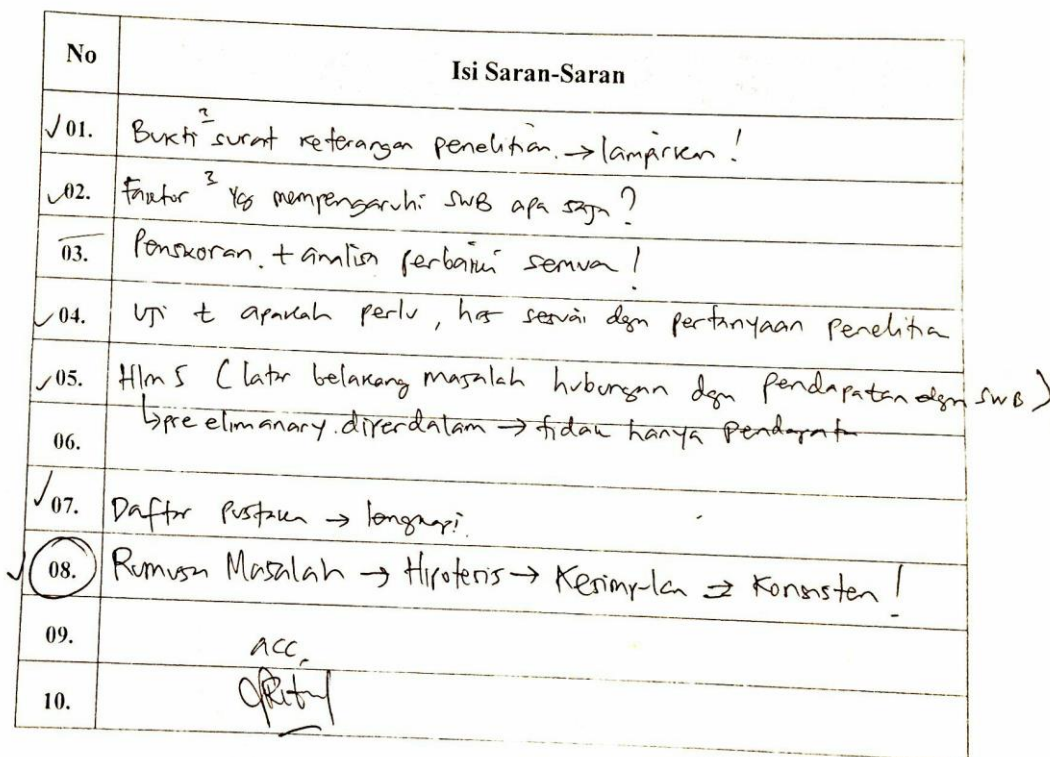 No Isi Saran-Saran
01. Bukti² surat keterangan penelitian. → lampirkan !
02. Faktor² yg mempengaruhi SWB apa saja ?
03. Penskoran. + analisa perbaiki semua !
04. Uji t apakah perlu, hrs sesuai dgn pertanyaan penelitian
05. Hlm 5 (latar belakang masalah hubungan dgn pendapatan dgn SWB)
06. ↳ pre elimanary. diperdalam → tidak hanya pendapatan
07. Daftar Pustaka → lengkapi.
08. Rumusan Masalah → Hipotesis → Kesimpulan → Konsisten !
09. acc,
10.